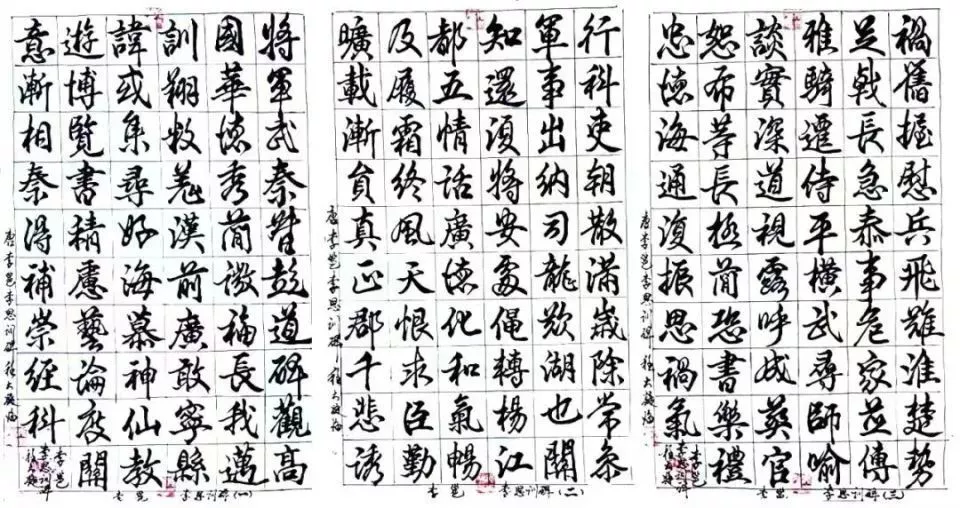 將軍武秦贊彭道碑觀高
國華德秀簡微福長我邁
訓翔救羌漢前廣敢寧縣
諱或集尋好海慕神仙教
遊博覽書精慮藝論度關
意漸相秦得補榮經科
李邕
李思训碑
唐李邕李思训碑
李邕 李思训碑(一)
行科吏朝散滿歲除常
軍事出納司龍歎湖也關
知還須將安處轉楊江
都五情話廣德化和氣暢
及履霜終風天恨求臣勤
曠載漸員真正郡千悲誘
唐李邕李思训碑
李邕 李思训碑(二)
禍舊握慰兵飛雖淮楚勢
足戟長急泰事危家並傅
雅騎遷侍平橫武尋師喻
談實深道視露呼成葵官
恕布等長極簡恐書樂禮
忠德海通復振思禍氣
李邕
李思训碑
唐李邕李思训碑
李邕 李思训碑(三)